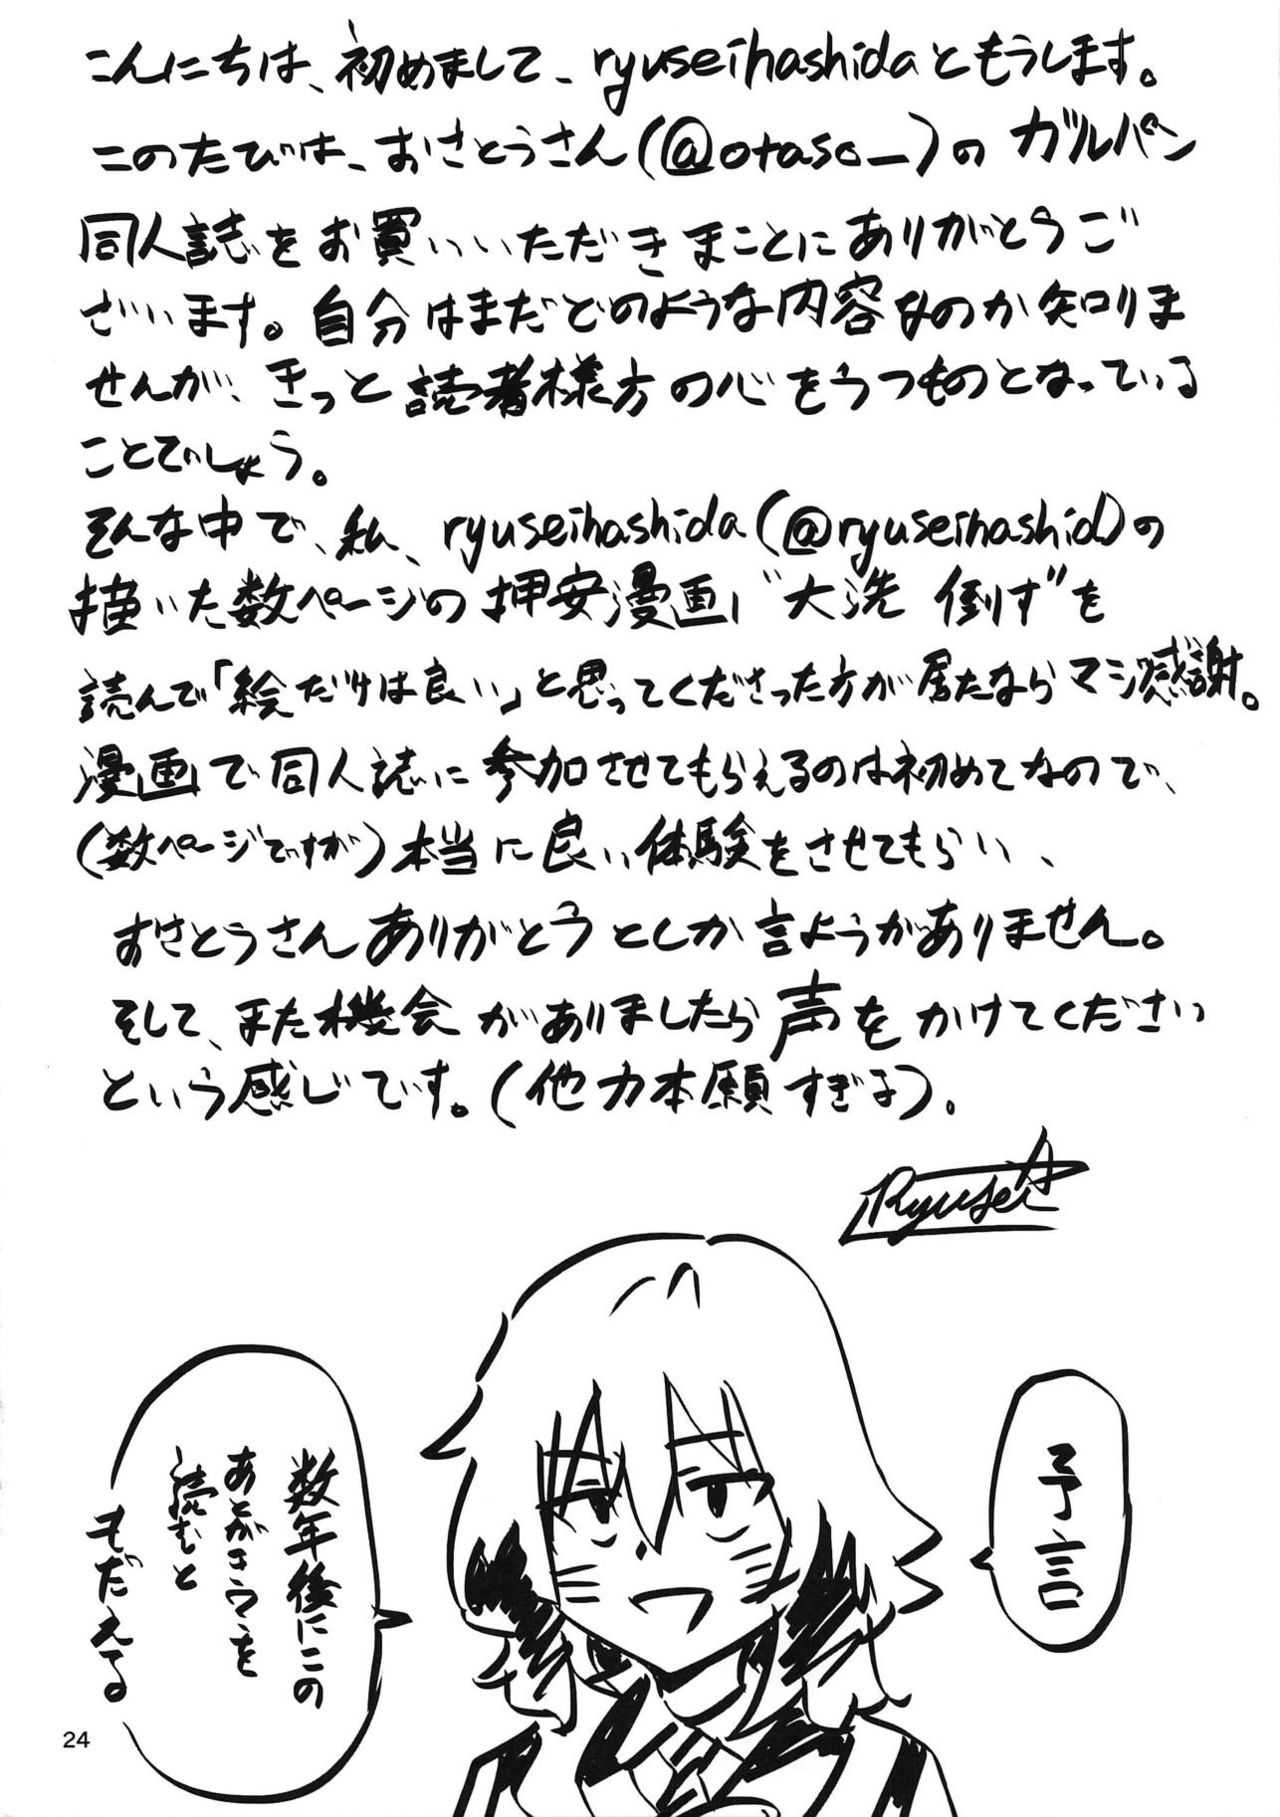 こんにちは、初めまして、ryuseihashidaともうします。
このたびは、おさとうさん(@otaso_)のガルパン
同人誌をお買いいただきまことにありがとうご
ざいます。自分はまだどのような内容なのか知りま
せんが、きっと読者様方の心をうつものとなっている
ことでしょう。
そんな中で、私、ryuseihashida(@ryuseihashid)の
描いた数ページの押安漫画"大洗 倒す"を
読んで「絵だけは良い」と思ってくださった方が居たならマジ感謝。
漫画で同人誌に参加させてもらえるのは初めてなので、
(数ページですが)本当に良い体験をさせてもらい、
おさとうさんありがとうとしか言ようがありません。
そして、また機会がありましたら声をかけてください
という感じです。(他力本願すぎな)。
Ryusei
予言
数年後にこの
あとがきを
読むと
もだえる
24